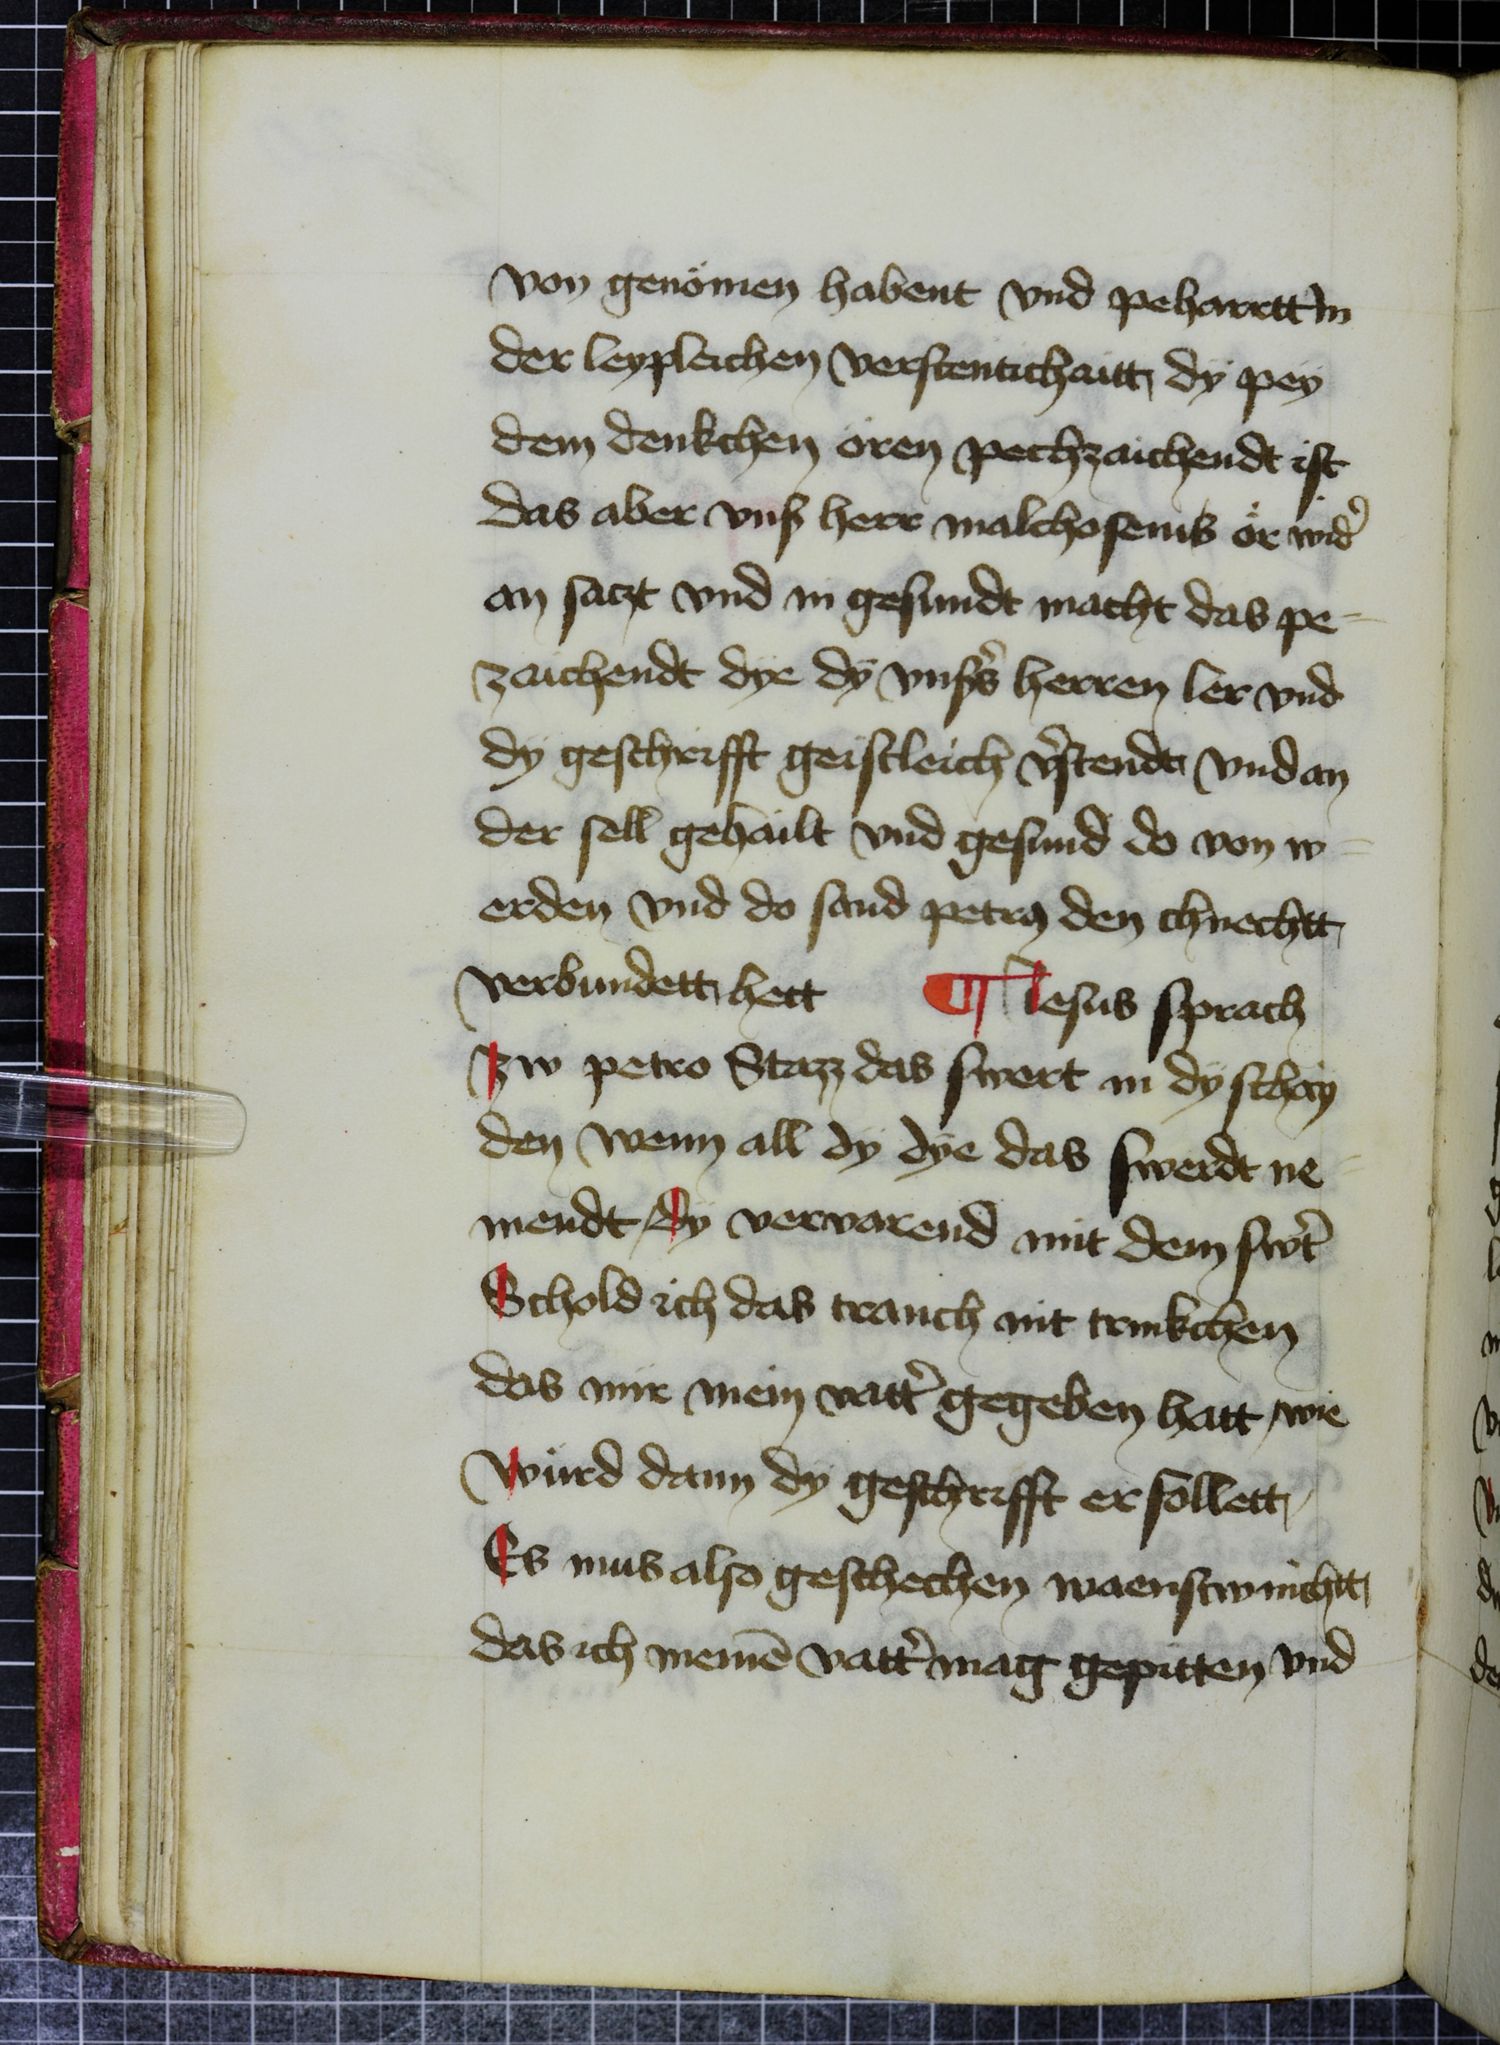 von genömen habent vnd peharrtt in
der leypleichen verstentichaitt dÿ peÿ
dem denkchen ören pechzaichendt ist
das aber vnß herr malchosenis ör wid̾
an saczt vnd in gesundt macht das pe-
zaichendt dÿe dÿ vnsßs̾ herren ler vnd
dÿ geschrifft geistleich v̾stendt vnd an
der sell gehailt vnd gesund do von w-
erden vnd do sand petrꝯ den chnechtt
verbundett hett ¶ Iesus sprach
zw petro Stazz das swert in dÿ schaÿ
den wenn all dÿ dÿe das swerdt ne-
mendt dÿ vervarend mit dem swt̾
Schold ich das tranch nit trinkchen
das mir mein vatt̾ gegeben hatt wie
würd dann dÿ geschrifft ersollett
Es mus also geschechen waenstw nichtt
das ich meinē vatt̾ mag gepitten vnd